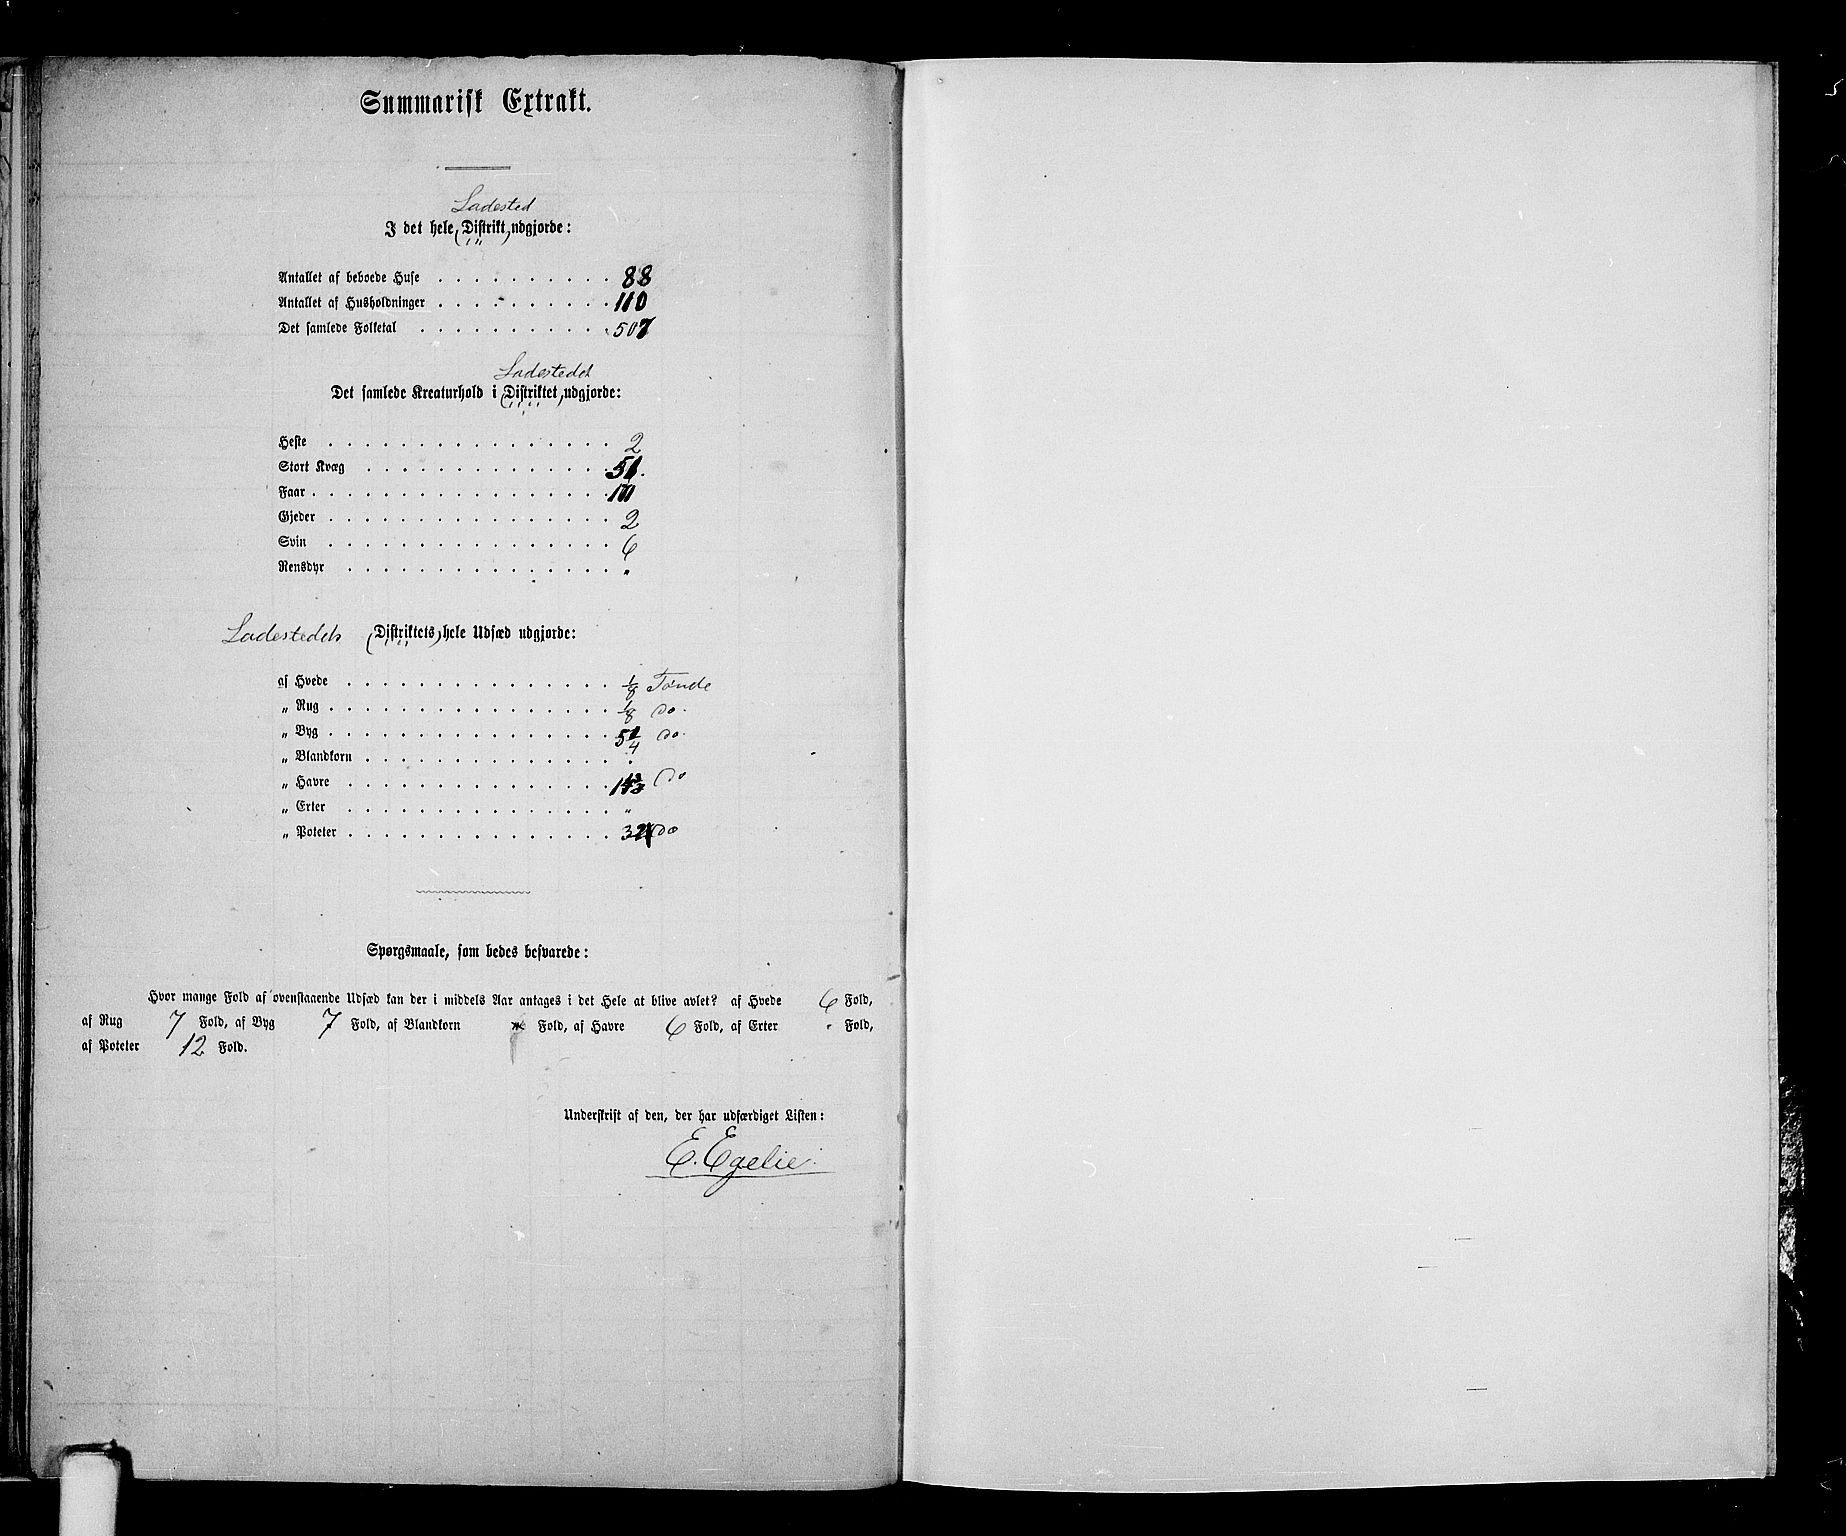 Summarisk Extrakt.
Ladested
I det hele (Distrikt) udgjorde:
Antallet af beboede Huse . . . . . . . . . . 88
Antallet af Husholdninger . . . . . . . . . . 110
Det samlede Folketal . . . . . . . . . . 507
Ladestedet
Det samlede Kreaturhold i (Distriktet) udgjorde:
Heste . . . . . . . . . . 2
Stort Kvæg . . . . . . . . . . 51.
Faar . . . . . . . . . .
Gjeder . . . . . . . . . . 2
Svin . . . . . . . . . . 6
Rensdyr . . . . . . . . . . "
Ladestedets (Distriktets) hele Udsæd udgjorde:
af Hvede . . . . . . . . . . 1/8 Tønde
„ Rug . . . . . . . . . . 1/8 do.
„ Byg . . . . . . . . . . do.
„ Blandkorn . . . . . . . . . . "
„ Havre . . . . . . . . . . do
„ Erter . . . . . . . . . . "
„ Poteter . . . . . . . . . . do
Spørgsmaale, som bedes besvarede:
Hvor mange Fold af ovenstaaende Udsæd kan der i middels Aar antages i det Hele at blive avlet? af Hvede 6 Fold,
af Rug 7 Fold, af Byg 7 Fold, af Blandkorn Fold, af Havre 6 Fold, af Erter " Fold,
af Poteter 12 Fold.
Underskrift af den, der har udfærdiget Listen:
E. Egelie.